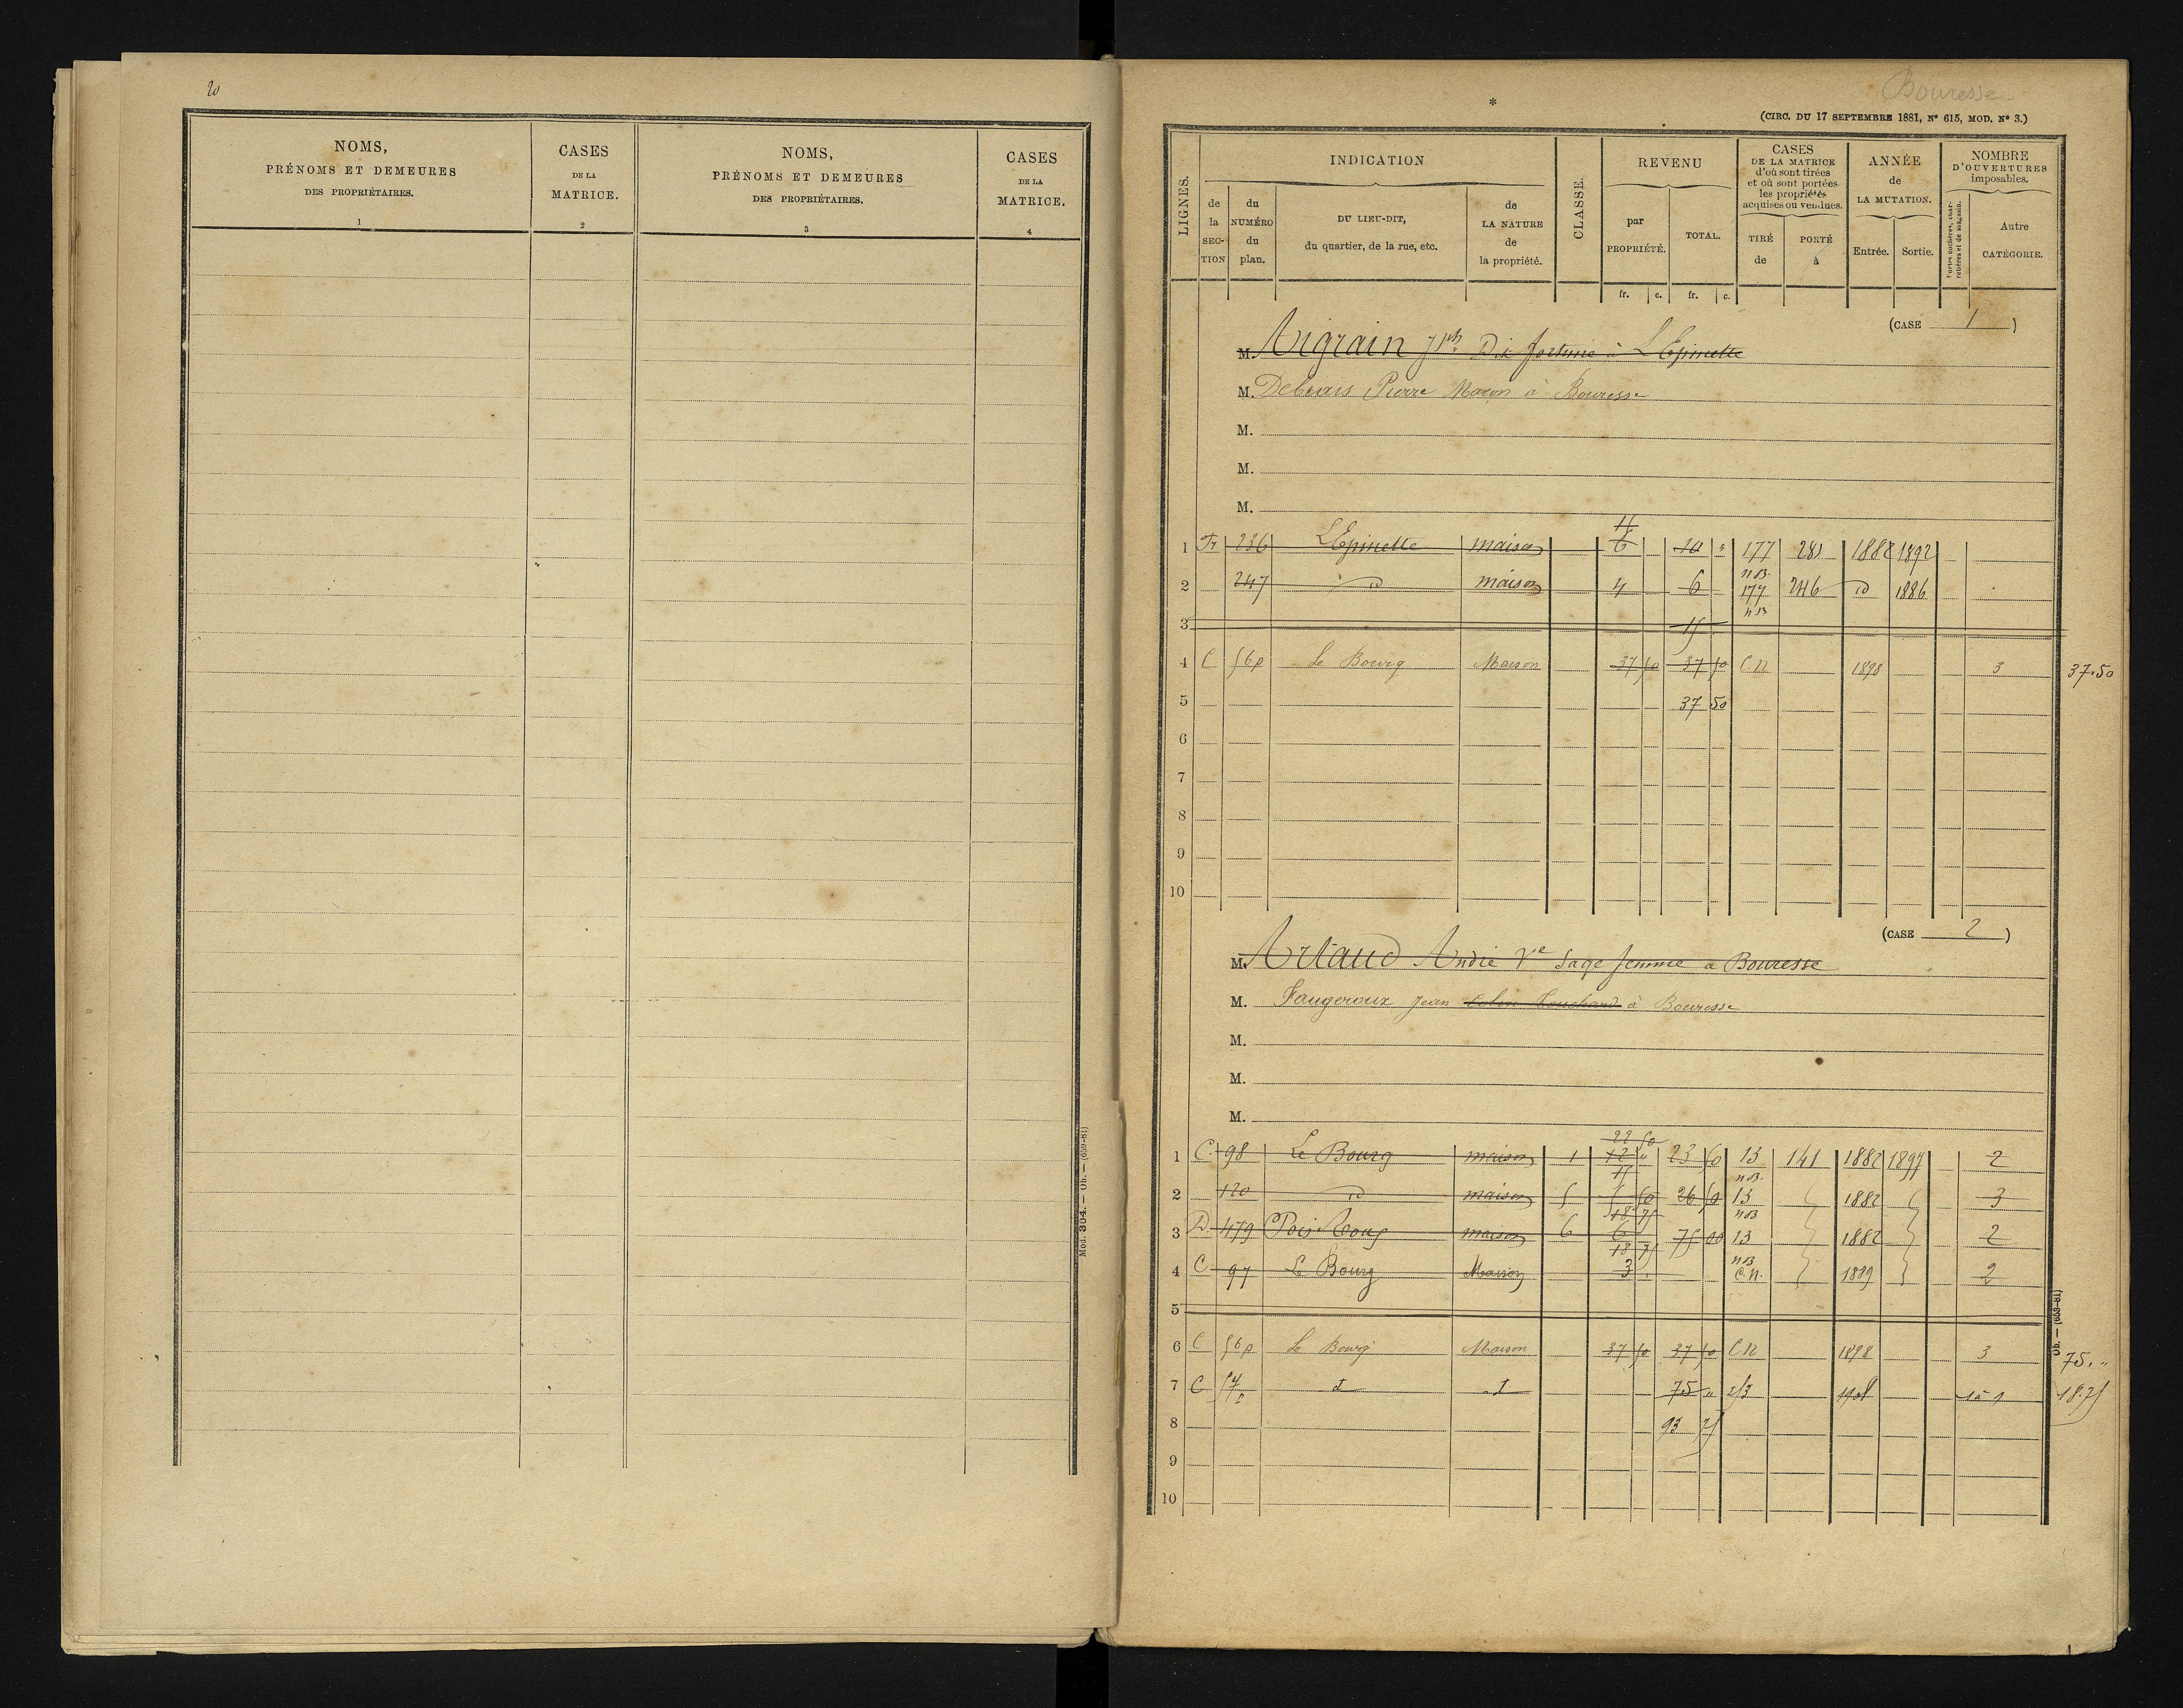 20
NOMS, PRÉNOMS ET DEMEURES DES PROPRIÉTAIRES.
CASES DE LA MATRICE.
NOMS, PRÉNOMS ET DEMEURES DES PROPRIÉTAIRES.
CASES DE LA MATRICE.
1 2 3 4
Mod. 304. — Ob. — (659-81)
Bouresse
*
(CIRC. DU 17 SEPTEMBRE 1881, Nº 615, MOD. Nº 3.)
LIGNES.
INDICATION
de la SECTION
du NUMÉRO du plan.
DU LIEU-DIT, du quartier, de la rue, etc.
de LA NATURE de la propriété.
CLASSE.
REVENU
par PROPRIÉTÉ.
TOTAL.
fr. c. fr. c.
CASES DE LA MATRICE d'où sont tirées et où sont portées les propriétés acquises ou vendues.
TIRÉ de
PORTÉ à
ANNÉE de LA MUTATION.
Entrée. Sortie.
NOMBRE D'OUVERTURES imposables.
Portes cochères, charretières et de magasin.
Autre CATÉGORIE.
(CASE 1)
M. Aigrain Jph à L'Epinette
M. Pierre Maçon à Bouresse
M.
M.
M.
1 236 L'Epinette maison 6 10 " 177 281 1882 1892
2 247 d maison 4 6 177 246 d 1886
3 15
4 C 56p Le Bourg Maison 37 50 37 50 C.N 1898 3 37.50
5 37 50
6
7
8
9
10
(CASE 2)
M. Artaud André Ve Sage femme a Bouresse
M. Faugeroux Jean à Bouresse
M.
M.
M.
22 50
1 C. 98 Le Bourg maison 1 12 " 23 50 13 141 1882 1897 2
2 120 d maison 5 5 50 26 50 13 1882 3
18 75
3 D. 479 maison 6 6 75 00 13 1882 2
18 75
4 C 97 Le Bourg Maison 3 C.N. 1889 2
5
6 C 56p Le Bourg Maison 37 50 37 50 C N 1898 3 75. "
7 C 57p d d 75 " 1908 1 à 1 18.75
8 93 75
9
10
Ob. — (659-81)
1